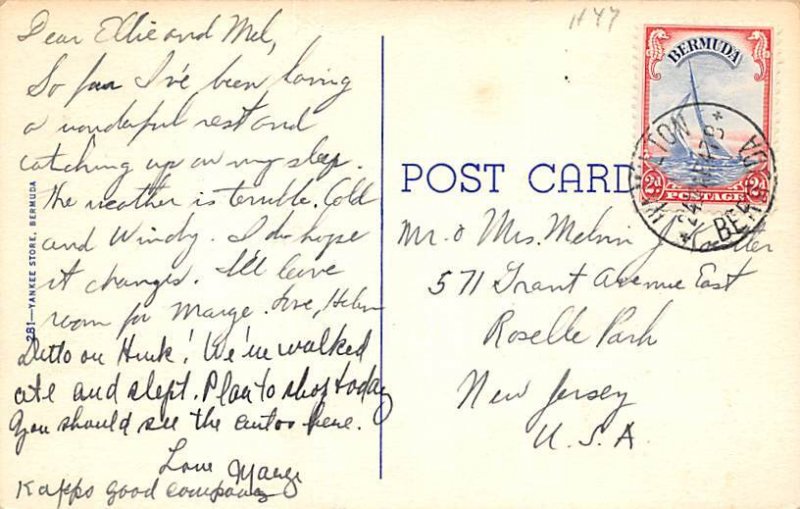 Dear Ellie and Mel,
So far I've been having
a wonderful rest and
catching up on my sleep.
The weather is terrible. Cold
and Windy. I do hope
it changes. I'll leave
room for Marge. Love, Helen
Ditto on Hunk! We've walked
ate and slept. Plan to shop today
You should see the autos here.
Love Marge
Kappo good company
281—YANKEE STORE, BERMUDA
H47
BERMUDA
2d POSTAGE 2d
HAMILTON
BERMUDA
POST CARD
Mr. & Mrs. Melvin J.
571 Grant Avenue East
Roselle Park
New Jersey
U.S.A.